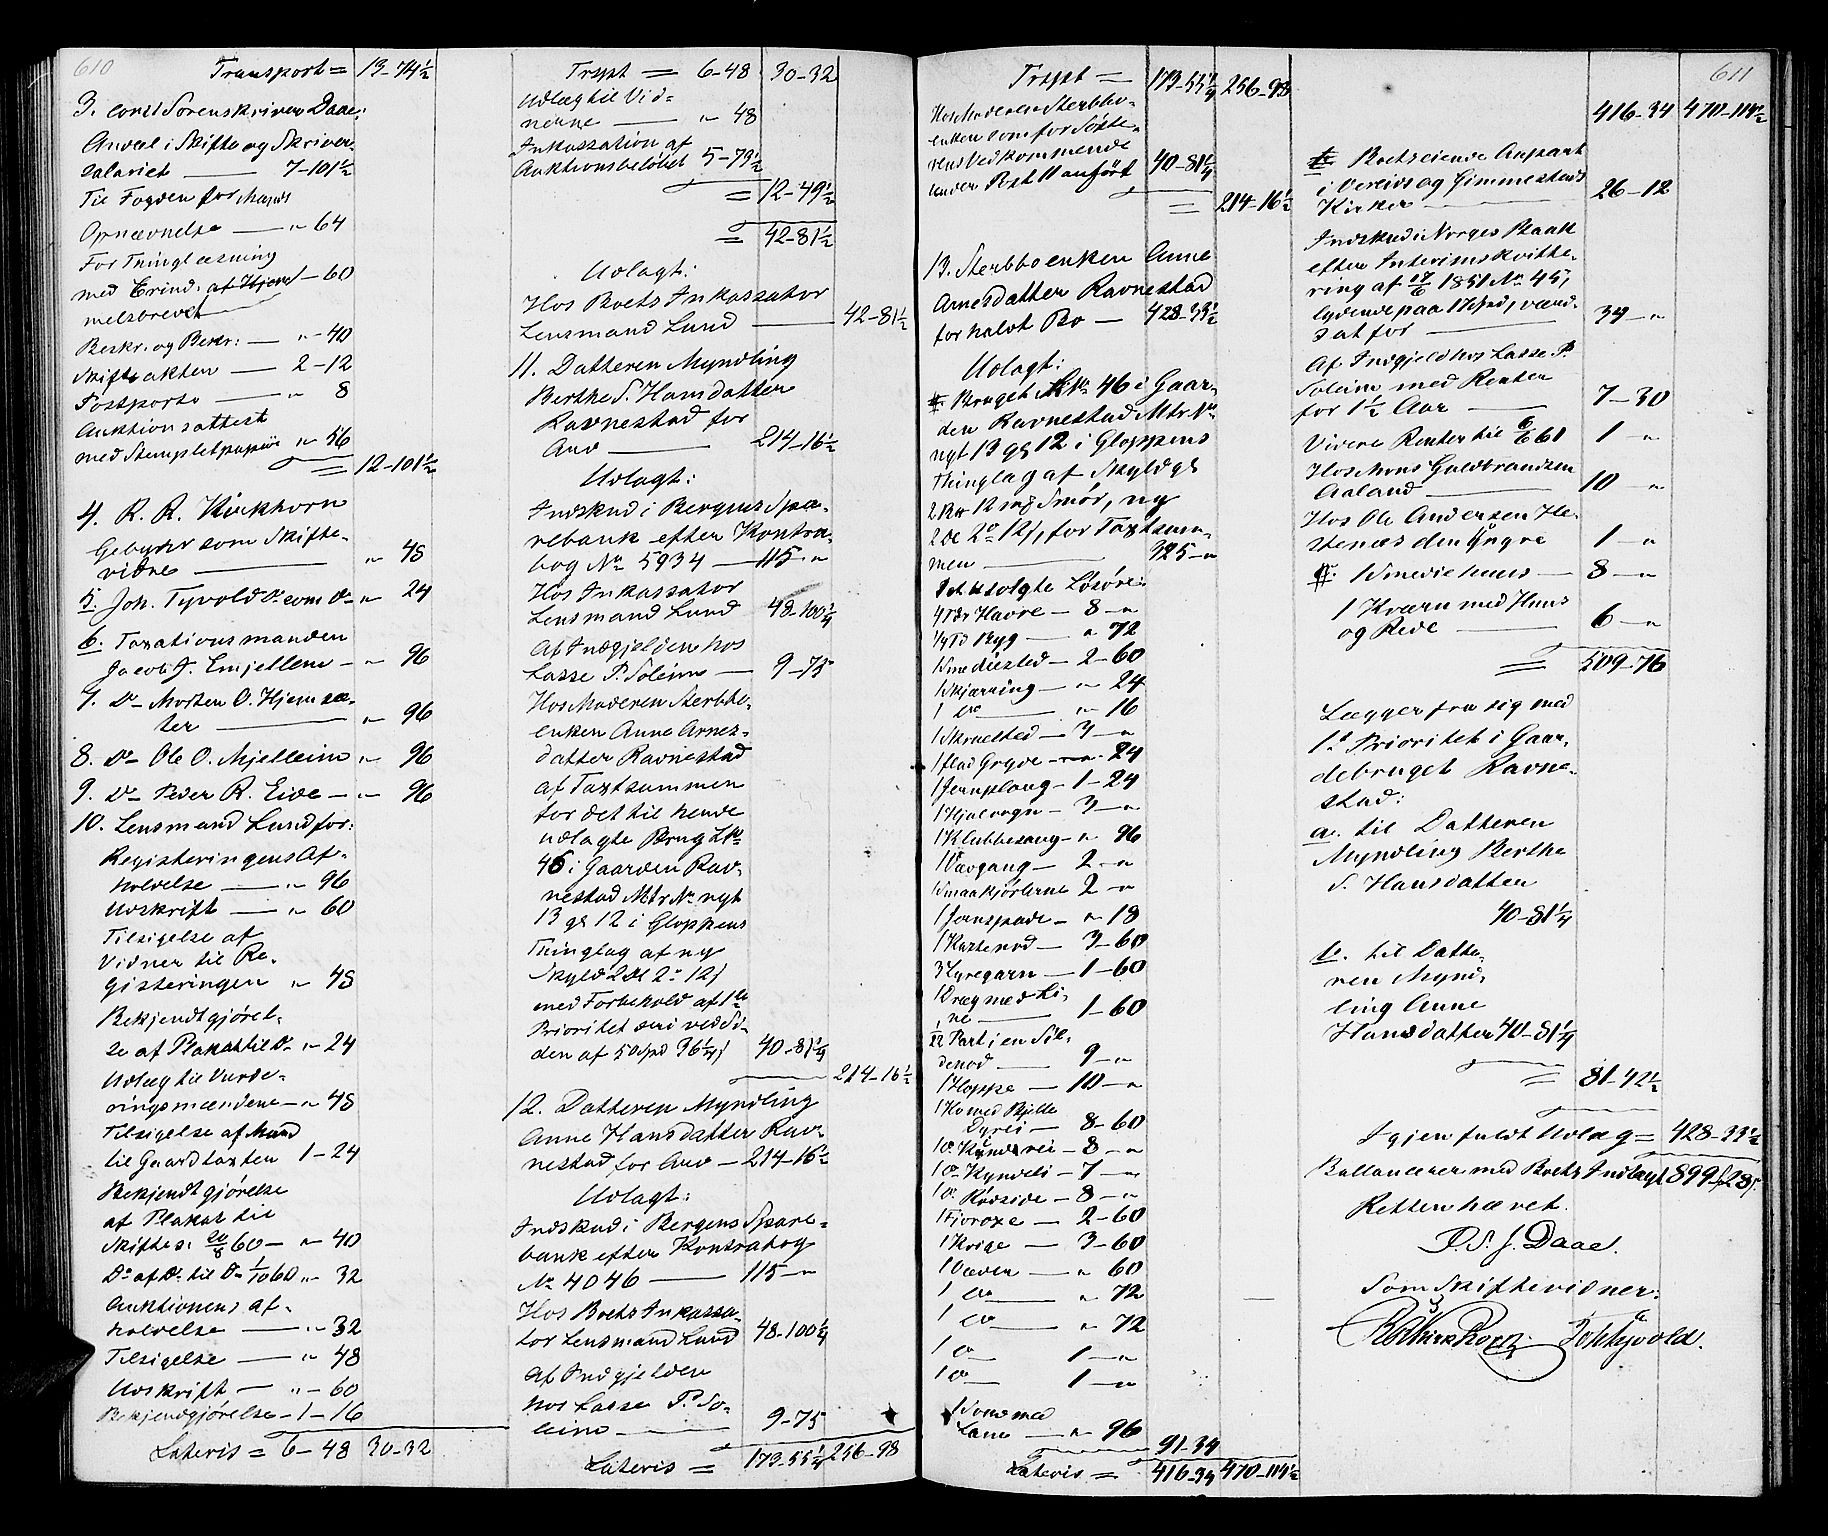 610
Transport = 13-74½
3. const Sorenskriver Daae:
Andeel i Skifte og Skriver-
salariet — 7-101½
Til Fogden for Mænds
Opnævnelse — „ 64
For Thinglæsning
med Erind. af Hjem- — 60
melsbrevet
Beskr. og Bekr: — „ 40
Skifteakten — 2-12
Postporto — „ 8
Auktionsattest
med Stempletpapiir „ 56
= 12-101½
4. R. R. Kirkhorn
Gebyhr som Skifte-
vidne — „ 48
5. Joh. Tyvold do som do „ 24
6. Taxationsmanden
Jacob J. Emjellem — „ 96
7. do Morten O. Hjemsæ-
ter — „ 96
8. do Ole O. Mjelleim „ 96
9. do Peder R. Eide — „ 96
10. Lensmand Lund for:
Registeringens Af-
holdelse — „ 96
Udskrift — „ 60
Tilsigelse af
Vidner til Re-
gisteringen „ 48
Bekjendtgjørel-
se af Plakat til do „ 24
Udlæg til Vurde-
ringsmændene — „ 48
Tilsigelse af Mænd
til Gaardtaxten 1-24
Bekjendtgjørelse
af Plakat til
Skiftes. 20/8 60 — „ 40
Do af do til do 1/10 60 „ 32
Auktionens af-
holdelse — „ 32
Tilsigelse — „ 48
Udskrift — „ 60
Bekjendgjørelse — 1-16
Lateris = 6-48 30-32
Trspt = 6-48 30-32
Udlæg til Vid-
nerne — „ 48
Inkassation af
Auktionsbeløbet 5-73½
= 12-49½
= 42-81½
Udlagt:
Hos Boets Inkassator
Lensmand Lund — 42-81½
11. Datteren Myndling
Berthe S. Hansdatter
Ravnestad for
Arv — 214-16½
Udlagt:
Indskud i Bergens Spa-
rebank efter Kontra-
bog No 5934 — 115-„
Hos Inkassator
Lensmand Lund 48-100¼
Af Indgjelden hos
Lasse P. Soleim — 9-75
Hos Moderen Sterbbo-
enken Anne Arnes-
datter Ravnestad
af Taxtsummen
for det til hende
udlagte Brug Lo
46 i Gaarden Rav-
nestad Mtr No nyt
13 gl 12 i Gloppens
Thinglag af ny
Skyld 2 Dl 2 o 12 s
med Forbehold af 1ste
Prioritet ved Si-
den af 50 Spd 96¼ s 40-81¼
214-16½
12. Datteren Myndling
Anne Hansdatter Rav-
nestad for Arv — 214-16½
Udlagt:
Indskud i Bergens Spare-
bank efter Kontrabog
No 4046 — 115-„
Hos Boets Inkassa-
tor Lensmand Lund 48-100¼
Af Indgjelden
hos Lasse P. So-
leim — 9-75
Lateris = 173-55¼ 256-98
Trspt = 173-55¼ 256-98
Hos Moderen Sterbbo-
enken som for Søste-
rens Vedkommende
under Post 11 anført 40-81¼
= 214-16½
13. Sterbboenken Anne
Arnesdatter Ravnestad
for halvt Bo — 428-33½
Udlagt:
Bruget Lo 46 i Gaar-
den Ravnestad Mtr No
nyt 13 gl 12 i Gloppens
Thinglag af Skyld gl
12 Smør, ny
2 Dl 2 o 12 s, for Taxtsum-
men — 325-„
Løsøre:
4 Tdr Havre — 8-„
½ Td Byg — „ 72
1 Smediested — 2-60
1 Skjærring — „ 24
1 do — „ 16
1 Skruested — 3-„
1 flad Gryde — „ 24
1 Jernploug — 1-24
1 Hjulvogn — 3-„
1 Klubbesaug — „ 96
1 Vævgang — 2-„
1 Smaakjørlerne 2-„
1 Jernspade — „ 18
1 Kastenod — 3-60
3 Hyregarn — 1-60
1 Dræg med Li-
ne — 1-60
Part i en Sil-
denod — 9-„
1 Hoppe — 10-„
1 Ko med Bjelle
Dyrei — 8-60
1 do Kyndrei — 8-„
1 do Kyndeli — 7-„
1 do Rødside — 8-„
1 Fjoroxe — 2-60
1 Kvige — 3-60
1 Væder — „ 60
1 do — „ 72
1 do — „ 72
1 do — 1-„
1 do — 1-„
1 Sou med
Lam — „ 96
91-34
Lateris = 416-34 470-114½
611
416-34 470-114½
Boets eiende Anpart
i Vereids og Gimmestads
Kirker — 26-12
Indskud i Norges Bank
efter Interimskvitte-
ring af 17/6 1851 No 45,
lydende paa 17 Spd, værd-
sat for — 34-„
Af Indgjeld hos Lasse P.
Soleim med Renter
for 1½ Aar — 7-30
Videre Renter til 6/6 61 1-„
Hos Mons Guldbrandsen
Aaland — 10-„
Hos Ole Andersen He-
stenæs den yngre 1-„
1 Smediehuus — 8-„
1 Kværn med Huus
og Rede — 6-„
= 509-76
Lægger fra sig med
1ste Prioritet i Gaar-
debruget Ravne-
stad:
a. til Datteren
Myndling Berthe
S. Hansdatter
40-81¼
b. til Datte-
ren Mynd-
ling Anne
Hansdatter 40-81¼
= 81-42½
Igjen fuldt Udlæg = 428-33½
Ballancerer med Boets Indtægt 899-28 s.
Retten hævet.
P. S. J. Daae.
Som Skiftevidner:
RRKirkhorn JohTyvold.